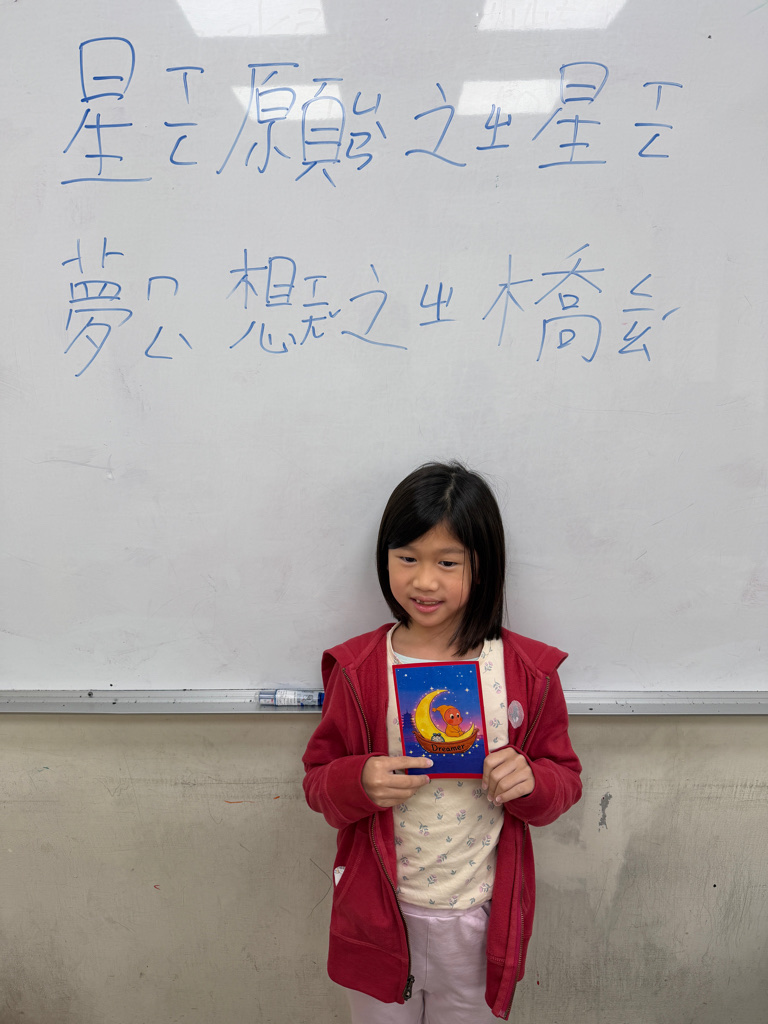 星ㄒㄧㄥ願ㄩㄢˋ之ㄓ星ㄒㄧㄥ
夢ㄇㄥˋ想ㄒㄧㄤˇ之ㄓ橋ㄑㄧㄠˊ
Dreamer